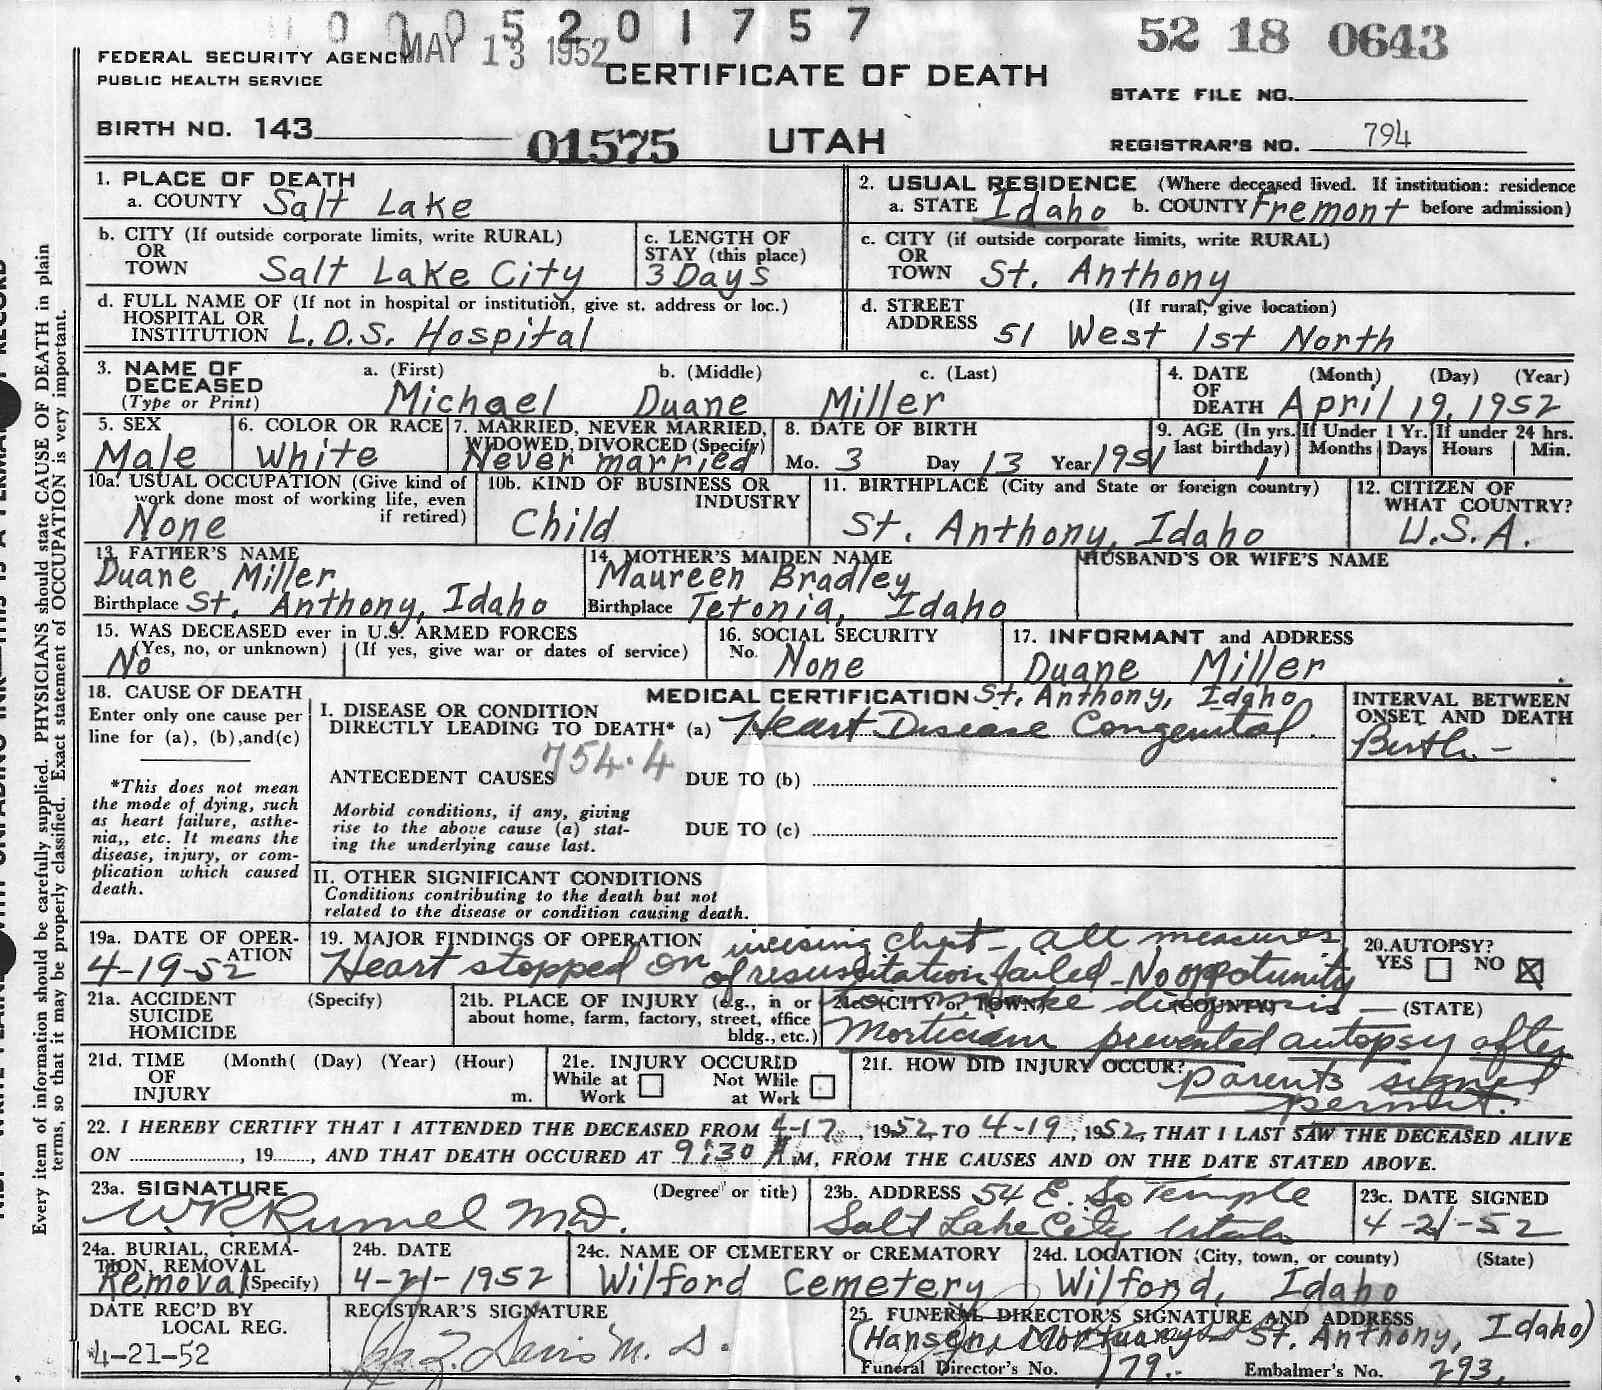 0 0 0 5 2 0 1 7 5 7
MAY 13 1952
52 18 0643
FEDERAL SECURITY AGENCY
PUBLIC HEALTH SERVICE
CERTIFICATE OF DEATH
STATE FILE NO.
BIRTH NO. 143
01575
UTAH
REGISTRAR'S NO. 794
1. PLACE OF DEATH
a. COUNTY Salt Lake
2. USUAL RESIDENCE (Where deceased lived. If institution: residence
a. STATE Idaho b. COUNTY Fremont before admission)
b. CITY (If outside corporate limits, write RURAL)
OR
TOWN Salt Lake City
c. LENGTH OF
STAY (this place)
3 Days
c. CITY (if outside corporate limits, write RURAL)
OR
TOWN St. Anthony
d. FULL NAME OF (If not in hospital or institution, give st. address or loc.)
HOSPITAL OR
INSTITUTION L.D.S. Hospital
d. STREET (If rural, give location)
ADDRESS 51 West 1st North
3. NAME OF
DECEASED
(Type or Print)
a. (First) b. (Middle) c. (Last)
Michael Duane Miller
4. DATE (Month) (Day) (Year)
OF
DEATH April 19, 1952
5. SEX
Male
6. COLOR OR RACE
White
7. MARRIED, NEVER MARRIED,
WIDOWED, DIVORCED (Specify)
Never married
8. DATE OF BIRTH
Mo. 3 Day 13 Year 1951
9. AGE (In yrs.
last birthday) 1
If Under 1 Yr.
Months Days
If under 24 hrs.
Hours Min.
10a. USUAL OCCUPATION (Give kind of
work done most of working life, even
if retired)
None
10b. KIND OF BUSINESS OR
INDUSTRY
Child
11. BIRTHPLACE (City and State or foreign country)
St. Anthony, Idaho
12. CITIZEN OF
WHAT COUNTRY?
U.S.A.
13. FATHER'S NAME
Duane Miller
Birthplace St. Anthony, Idaho
14. MOTHER'S MAIDEN NAME
Maureen Bradley
Birthplace Tetonia, Idaho
HUSBAND'S OR WIFE'S NAME
15. WAS DECEASED ever in U.S. ARMED FORCES
(Yes, no, or unknown) (If yes, give war or dates of service)
No
16. SOCIAL SECURITY
No. None
17. INFORMANT and ADDRESS
Duane Miller
St. Anthony, Idaho
18. CAUSE OF DEATH
Enter only one cause per
line for (a), (b),and(c)
*This does not mean
the mode of dying, such
as heart failure, asthe-
nia,, etc. It means the
disease, injury, or com-
plication which caused
death.
MEDICAL CERTIFICATION
I. DISEASE OR CONDITION
DIRECTLY LEADING TO DEATH* (a) Heart Disease Congenital
754.4
ANTECEDENT CAUSES DUE TO (b)
Morbid conditions, if any, giving
rise to the above cause (a) stat-
ing the underlying cause last.
DUE TO (c)
II. OTHER SIGNIFICANT CONDITIONS
Conditions contributing to the death but not
related to the disease or condition causing death.
INTERVAL BETWEEN
ONSET AND DEATH
Birth -
19a. DATE OF OPER-
ATION
4-19-52
19. MAJOR FINDINGS OF OPERATION
Heart stopped on incising chest - all measures
of resuscitation failed - No oppotunity
to make diagnosis -
Mortician prevented autopsy after
parents signed
permit.
20.AUTOPSY?
YES ☐ NO ☒
21a. ACCIDENT (Specify)
SUICIDE
HOMICIDE
21b. PLACE OF INJURY (e.g., in or
about home, farm, factory, street, office
bldg., etc.)
21c. (CITY or TOWN) (COUNTY) (STATE)
21d. TIME (Month( (Day) (Year) (Hour)
OF
INJURY m.
21e. INJURY OCCURED
While at Work ☐ Not While at Work ☐
21f. HOW DID INJURY OCCUR?
22. I HEREBY CERTIFY THAT I ATTENDED THE DECEASED FROM 4-17, 1952, TO 4-19, 1952, THAT I LAST SAW THE DECEASED ALIVE
ON ........, 19....., AND THAT DEATH OCCURED AT 9:30 A.M, FROM THE CAUSES AND ON THE DATE STATED ABOVE.
23a. SIGNATURE (Degree or title)
W R Rumel M.D.
23b. ADDRESS 54 E. So Temple
Salt Lake City Utah
23c. DATE SIGNED
4-21-52
24a. BURIAL, CREMA-
TION, REMOVAL
Removal (Specify)
24b. DATE
4-21-1952
24c. NAME OF CEMETERY or CREMATORY
Wilford Cemetery
24d. LOCATION (City, town, or county) (State)
Wilford, Idaho
DATE REC'D BY
LOCAL REG.
4-21-52
REGISTRAR'S SIGNATURE
Davis M. D.
25. FUNERAL DIRECTOR'S SIGNATURE AND ADDRESS
(Hansen Mortuary St. Anthony, Idaho)
Funeral Director's No. 179.- Embalmer's No. 293.
Every item of information should be carefully supplied. PHYSICIANS should state CAUSE OF DEATH in plain
terms, so that it may be properly classified. Exact statement of OCCUPATION is very important.